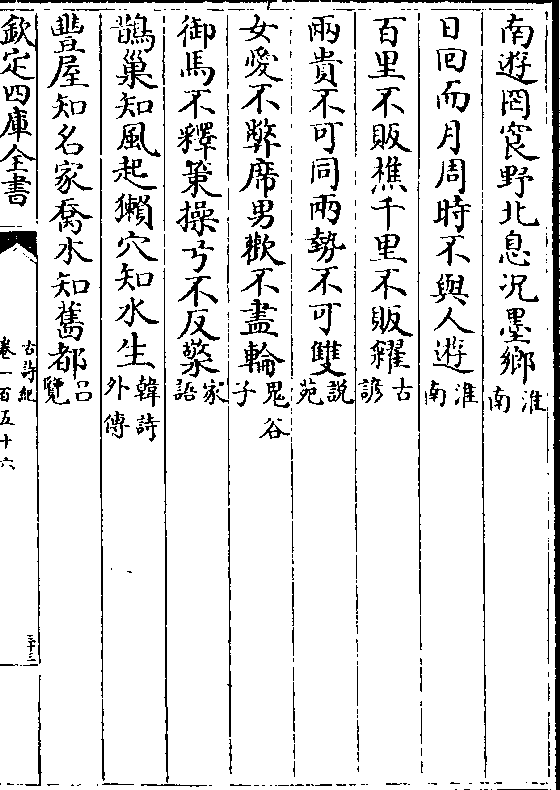 南遊罔㝗野北息況墨鄉淮南
日回而月周時不與人遊淮南
百里不販樵千里不販糴古諺
兩貴不可同兩勢不可雙說苑
女愛不弊席男歡不盡輪鬼谷子
御馬不釋策操弓不反檠家語
鵲巢知風起獺穴知水生韓詩外傳
豐屋知名家喬木知舊都呂覽
欽定四庫全書
古詩紀
卷一百五十六
三十三